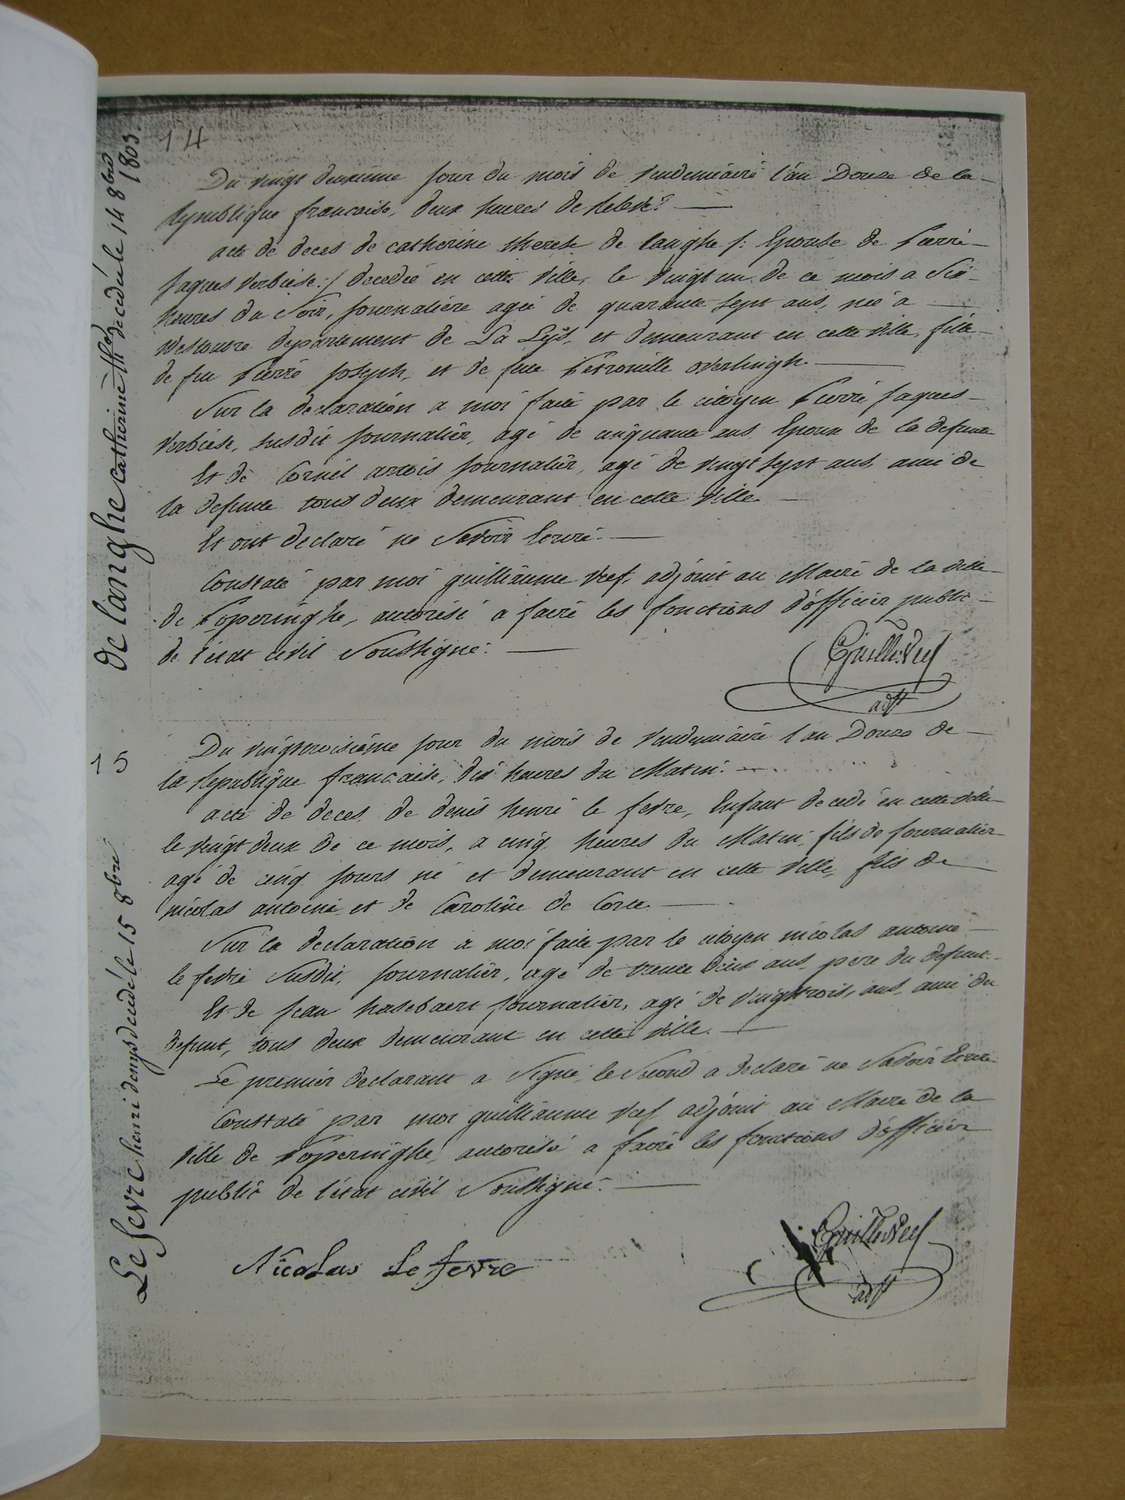 14
de langhe catherine decedé le 14 8bre 1803
Du vingt deuxieme jour du mois de vendemiaire l'an Douze de la
Republique francaise, deux heures de
acte de deces de catherine therese de langhe /: Epouse de Pierre
Jaques verbiese :/ decedée en cette ville, le vingt un de ce mois a six
heures du soir, journaliere agée de quarante sept ans, née a
westoutre departement de La Lys, et demeurant en cette ville, fille
de feu Pierre Joseph, et de feue Petronille overlingh.
Sur la declaration a moi faite par le citoyen Pierre Jaques
verbiese, susdit journalier, agé de cinquante ans Epoux de la defunte
Et de Cornil artois journalier, agé de vingt sept ans, ami de
la defunte tous deux demeurant en cette ville.
Et ont declaré ne Savoir Ecrire.
Constaté par moi guilliaume Reef, adjoint au Maire de la ville
de Poperinghe, autorisé a faire les fonctions d'officier public
de l'etat civil Soussigné.
adjt
15
Le fevre henri denys decedé le 15 8bre
Du vingtroisieme jour du mois de vendemiaire l'an Douze de
la Republique francaise, dix heures du Matin.
acte de deces de denis henri le fevre, Enfant decedé en cette ville
le vingt deux de ce mois, a cinq heures du Matin, fils de journalier
agé de cinq jours né et demeurant en cette ville, fils de
nicolas antoine et de Caroline de Corte.
Sur la declaration a moi faite par le citoyen nicolas antoine
le fevre susdit, journalier, agé de trente deux ans, pere du defunt.
Et de jean hasebaert journalier, agé de vingtrois, ans, ami du
defunt, tous deux demeurant en cette ville.
Le premier declarant a Signé, le Second a declaré ne Savoir Ecrire
Constaté par moi guilliaume Reef adjoint au Maire de la
ville de Poperinghe, autorisé a faire les fonctions d'officier
public de l'etat civil Soussigné.
Nicolas Le fevre
adjt